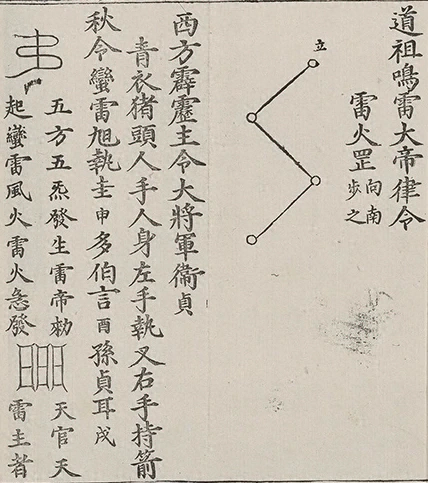 道祖鳴雷大帝律令
雷火罡向南步之
立
西方霹靂主令大將軍衞貞
青衣猪頭人手人身左手執叉右手持箭
秋令蠻雷旭執圭申多伯言酉孫貞耳戌
五方五炁發生雷帝勑
天官天
起蠻雷風火雷火急發
雷主者